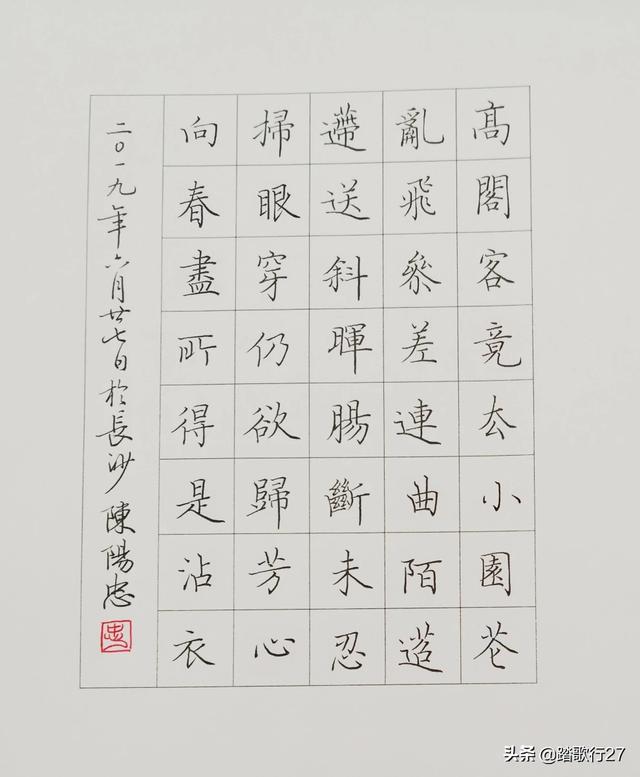 高閣客竟去小園花
亂飛參差連曲陌迢
遰送斜暉腸斷未忍
掃眼穿仍欲歸芳心
向春盡所得是沾衣
二〇一九年六月廿七日於長沙 陳陽忠
忠
头条 @踏歌行27